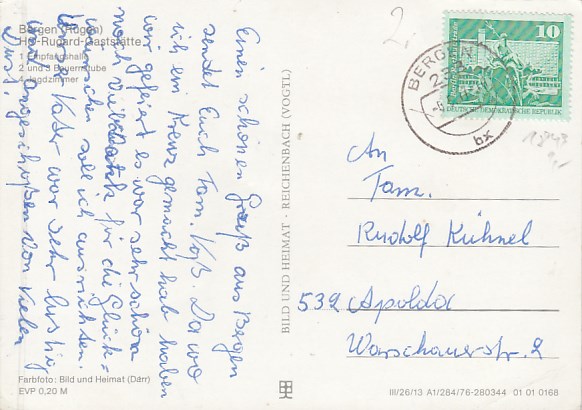 Bergen (Rügen)
HO-Rugard-Gaststätte
1 Empfangshalle
2 und 3 Bauernstube
4 Jagdzimmer
Einen schönen Gruß aus Bergen
sendet Euch Fam. Voß. Da wo
ich ein Kreuz gemacht hab haben
wir gefeiert es war sehr schön
noch vielen Dank für die Glück=
wünsche soll ich ausrichten.
Unser Vater war sehr lustig
und angeschoßen von vielen
Durst.
Farbfoto: Bild und Heimat (Därr)
EVP 0,20 M
BILD UND HEIMAT · REICHENBACH (VOGTL)
10
DEUTSCHE DEMOKRATISCHE REPUBLIK
BERGEN
23
bx
An
Fam.
Rudolf Kühnel
532 Apolda
Warschauerstr. 2
III/26/13 A1/284/76-280344 01 01 0168